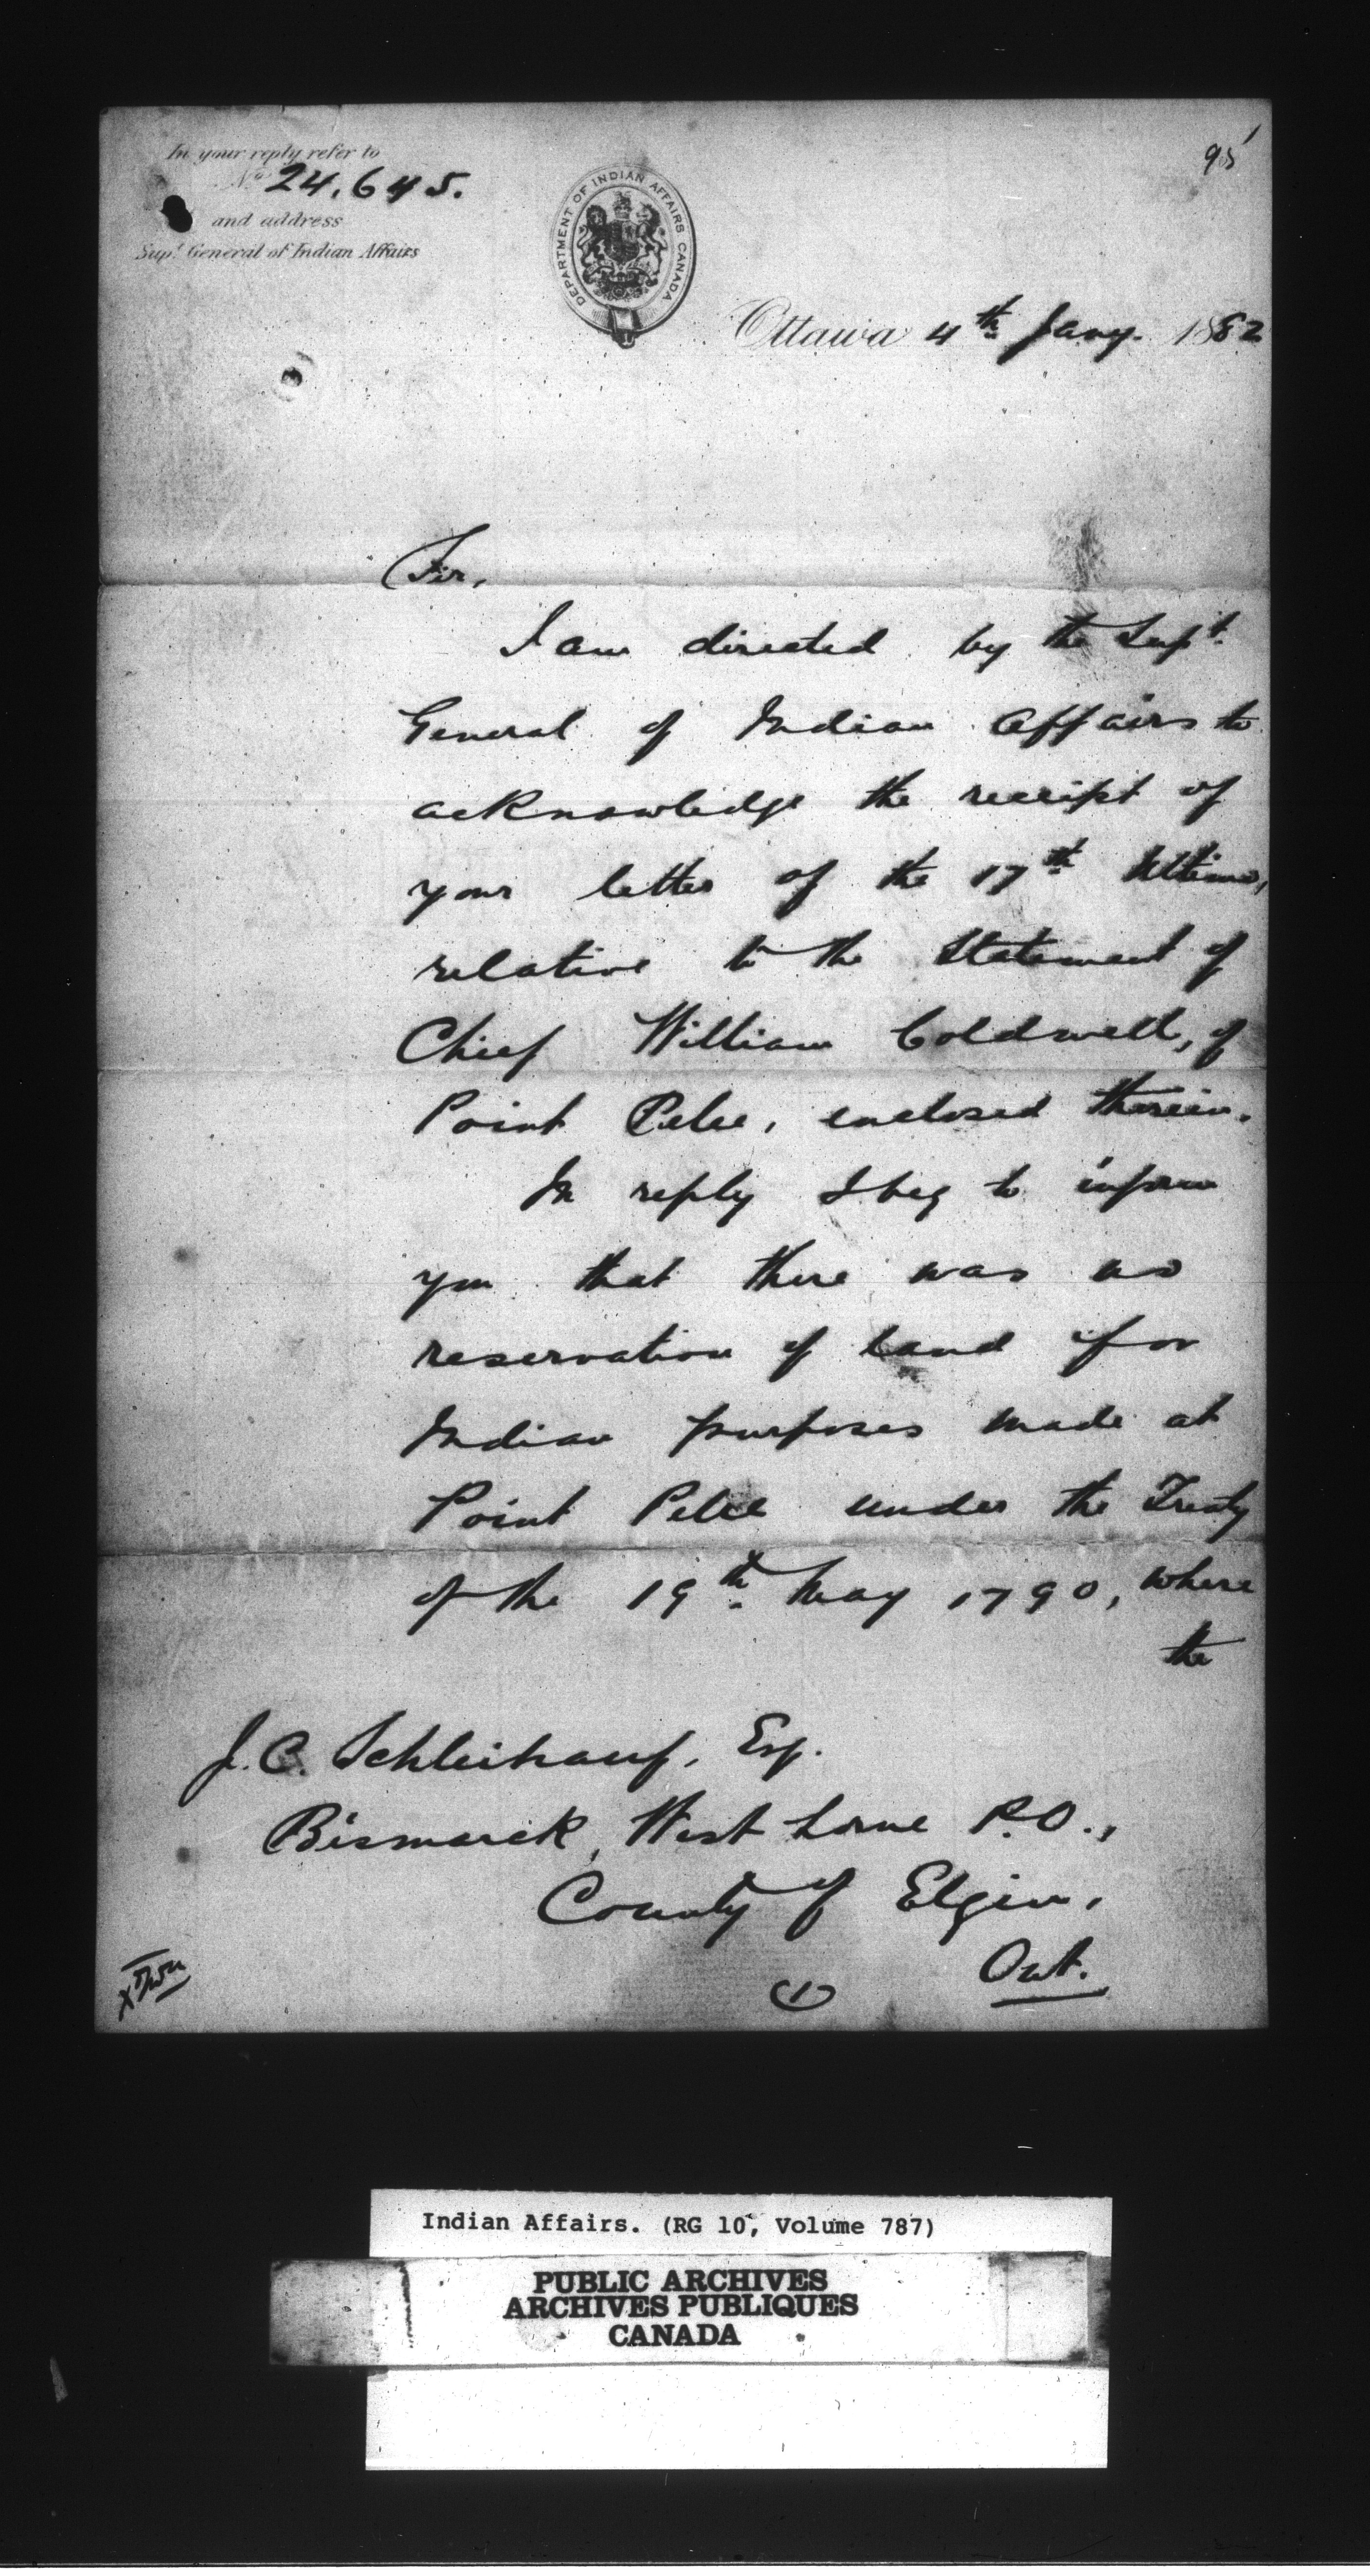 95
In your reply refer to
No 24,645.
and address
Supt. General of Indian Affairs
DEPARTMENT OF INDIAN AFFAIRS. CANADA
Ottawa 4th Jany. 1882
Sir,
I am directed by the Supt.
General of Indian Affairs to
acknowledge the receipt of
your letter of the 17th Ultimo,
relative to the Statement of
Chief William Coldwell, of
Point Pelee, enclosed therein.
In reply I beg to inform
you that there was no
reservation of land for
Indian purposes made at
Point Pelee under the Treaty
of the 19th May 1790, where
the
J. C. Schleihauf, Esq.
Bismarck, West Lorne P.O.,
County of Elgin,
Ont.
(1)
Indian Affairs. (RG 10, Volume 787)
PUBLIC ARCHIVES
ARCHIVES PUBLIQUES
CANADA